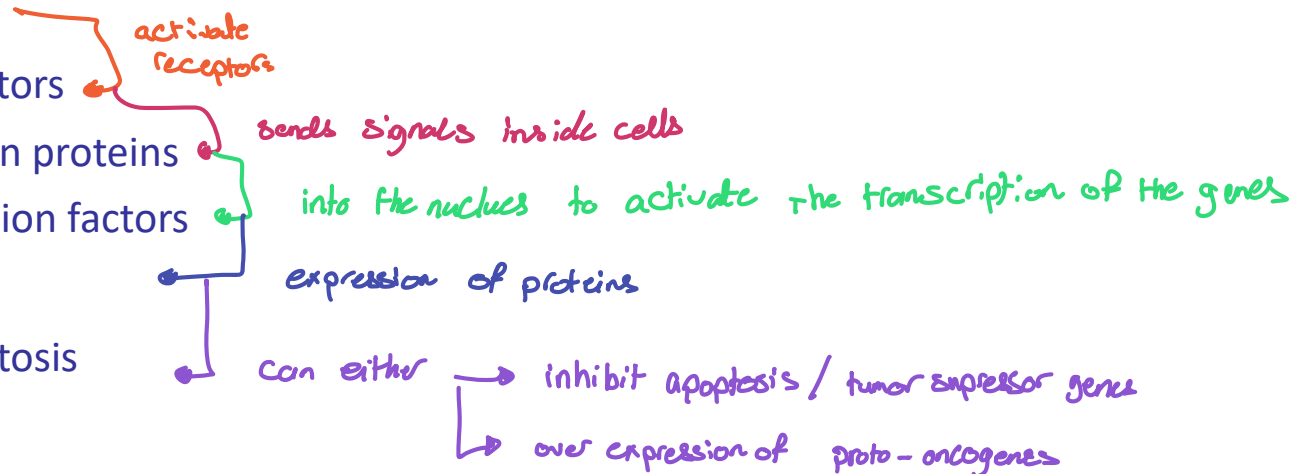 activate
receptors
tors
sends signals inside cells
n proteins
into the nuclues to activate the transcription of the genes
ion factors
expression of proteins
tosis
can either
inhibit apoptosis / tumor supressor genes
over expression of proto-oncogenes